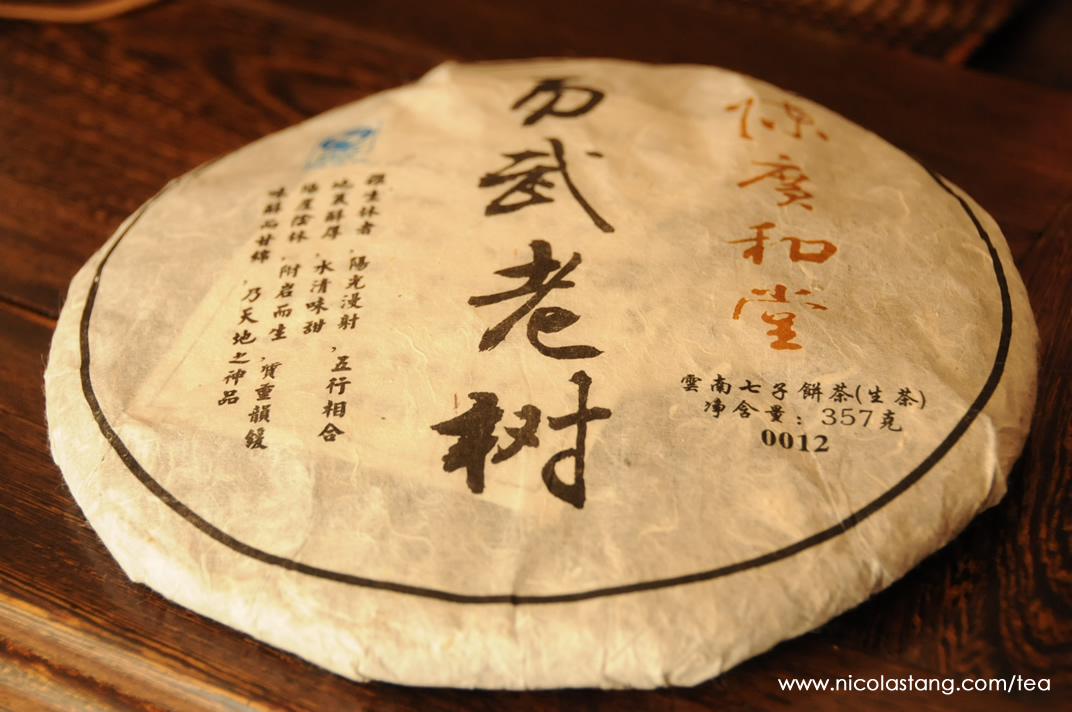 陳廣和堂
雲南七子餅茶(生茶)
净含量：357克
0012
易武老树
雅生林者，陽光漫射，五行相合
地氣醇厚，水清味甜
陽崖陰林，附岩而生，質重韻緩
味醇而甘綿，乃天地之神品
www.nicolastang.com/tea